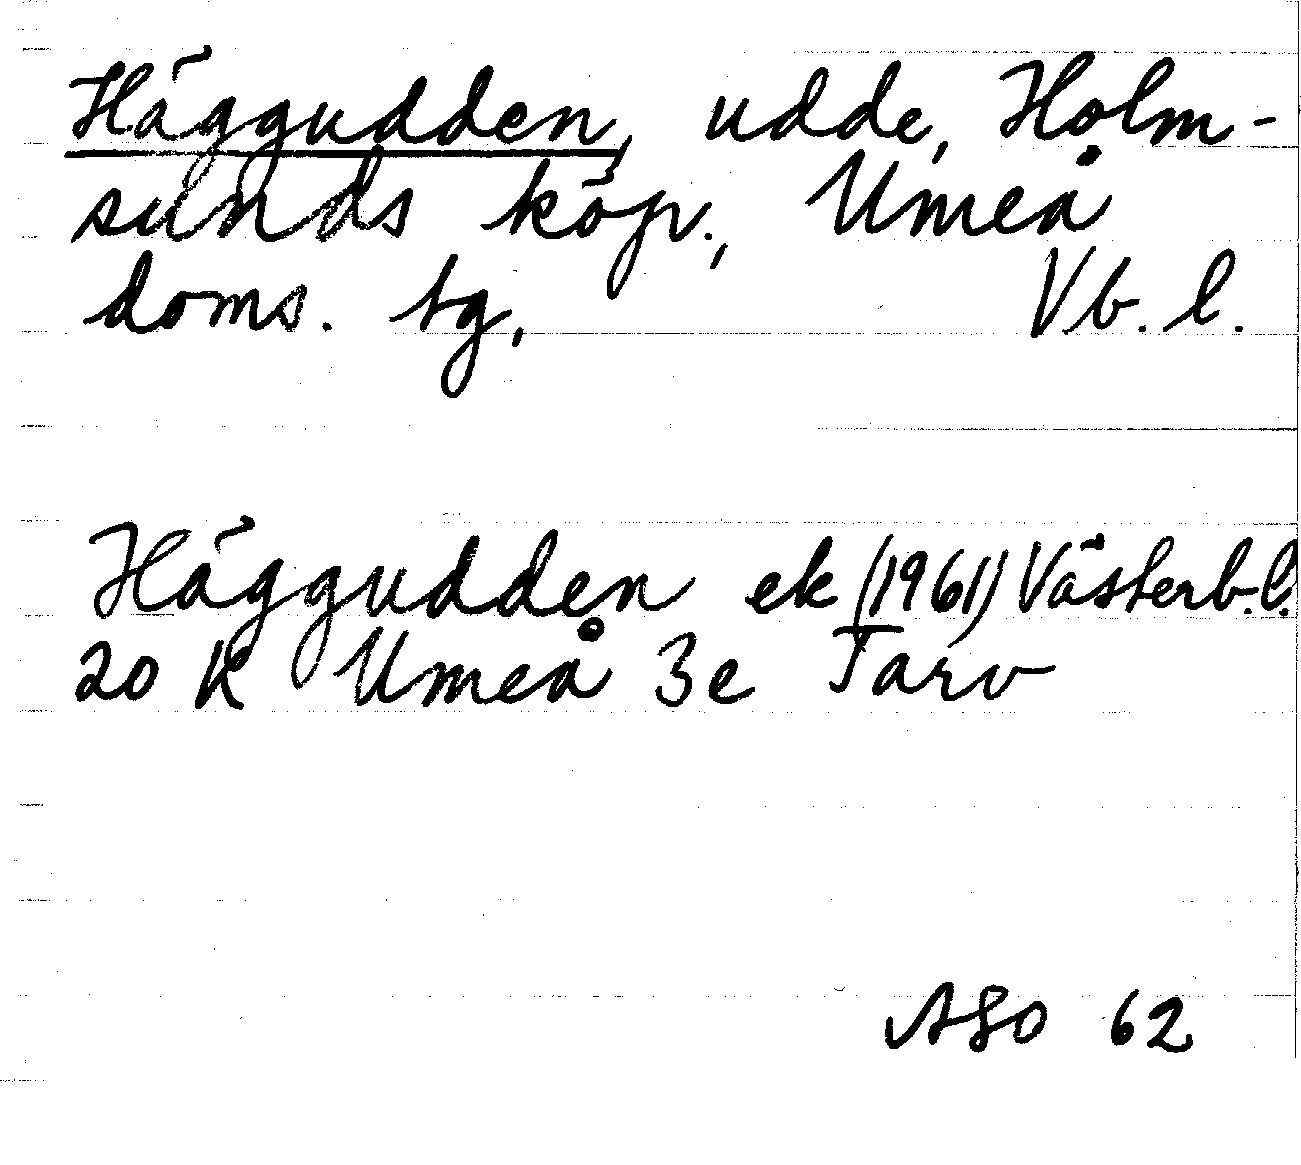 Häggudden, udde, Holm-
sunds köp., Umeå
doms. tg, Vb. l.
Häggudden ek (1961) Västerb. l.
20 K Umeå 3e Tarv
ASO 62